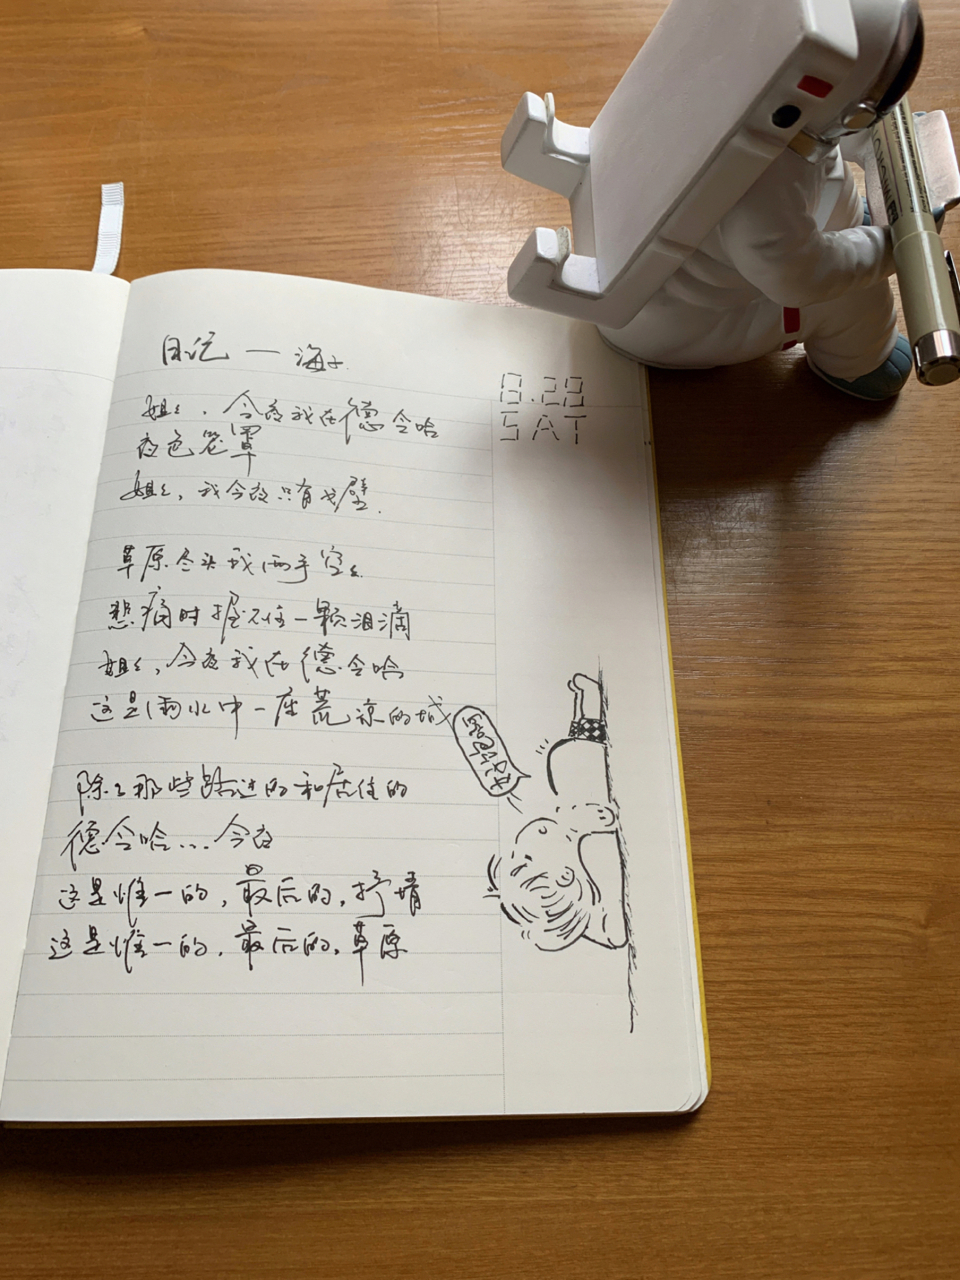 日记 — 海子
8.28
SAT
姐姐，今夜我在德令哈
夜色笼罩
姐姐，我今夜只有戈壁.
草原尽头我两手空空
悲痛时握不住一颗泪滴
姐姐，今夜我在德令哈
这是雨水中一座荒凉的城
除了那些路过的和居住的
德令哈...今夜
这是惟一的，最后的，抒情
这是惟一的，最后的，草原